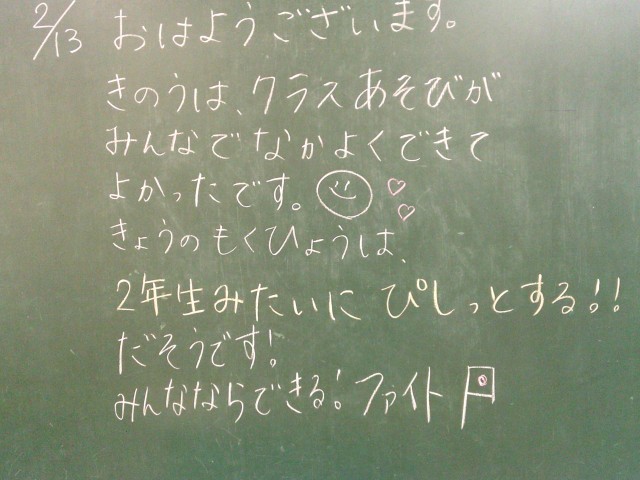 2/13 おはようございます。
きのうは、クラスあそびが
みんなでなかよくできて
よかったです。
きょうのもくひょうは、
2年生みたいに ぴしっとする!!
だそうです!
みんなならできる! ファイト